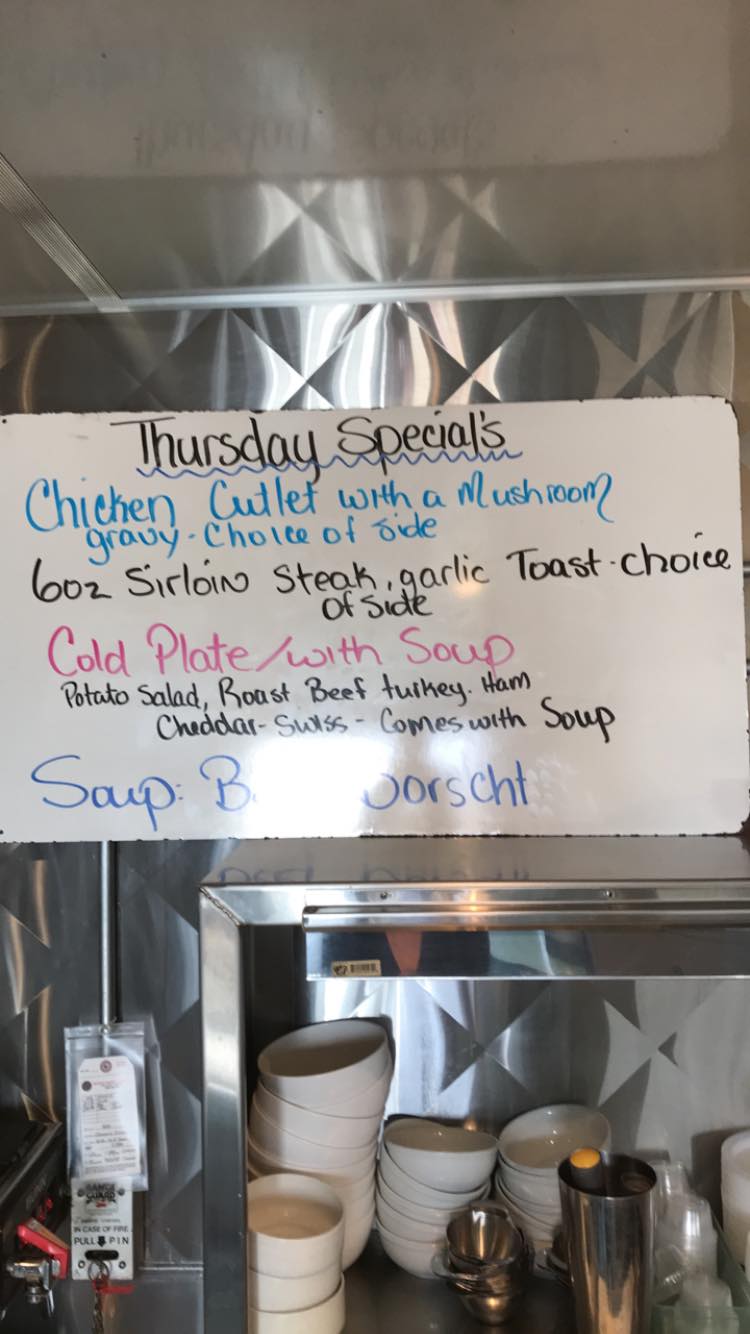 Thursday Special's
Chicken Cutlet with a Mushroom
gravy - Choice of side
6oz Sirloin Steak, garlic Toast - choice
of side
Cold Plate/with Soup
Potato Salad, Roast Beef turkey. Ham
Cheddar - Swiss - Comes with Soup
Soup:
RANGE
GUARD
IN CASE OF FIRE
PULL PIN